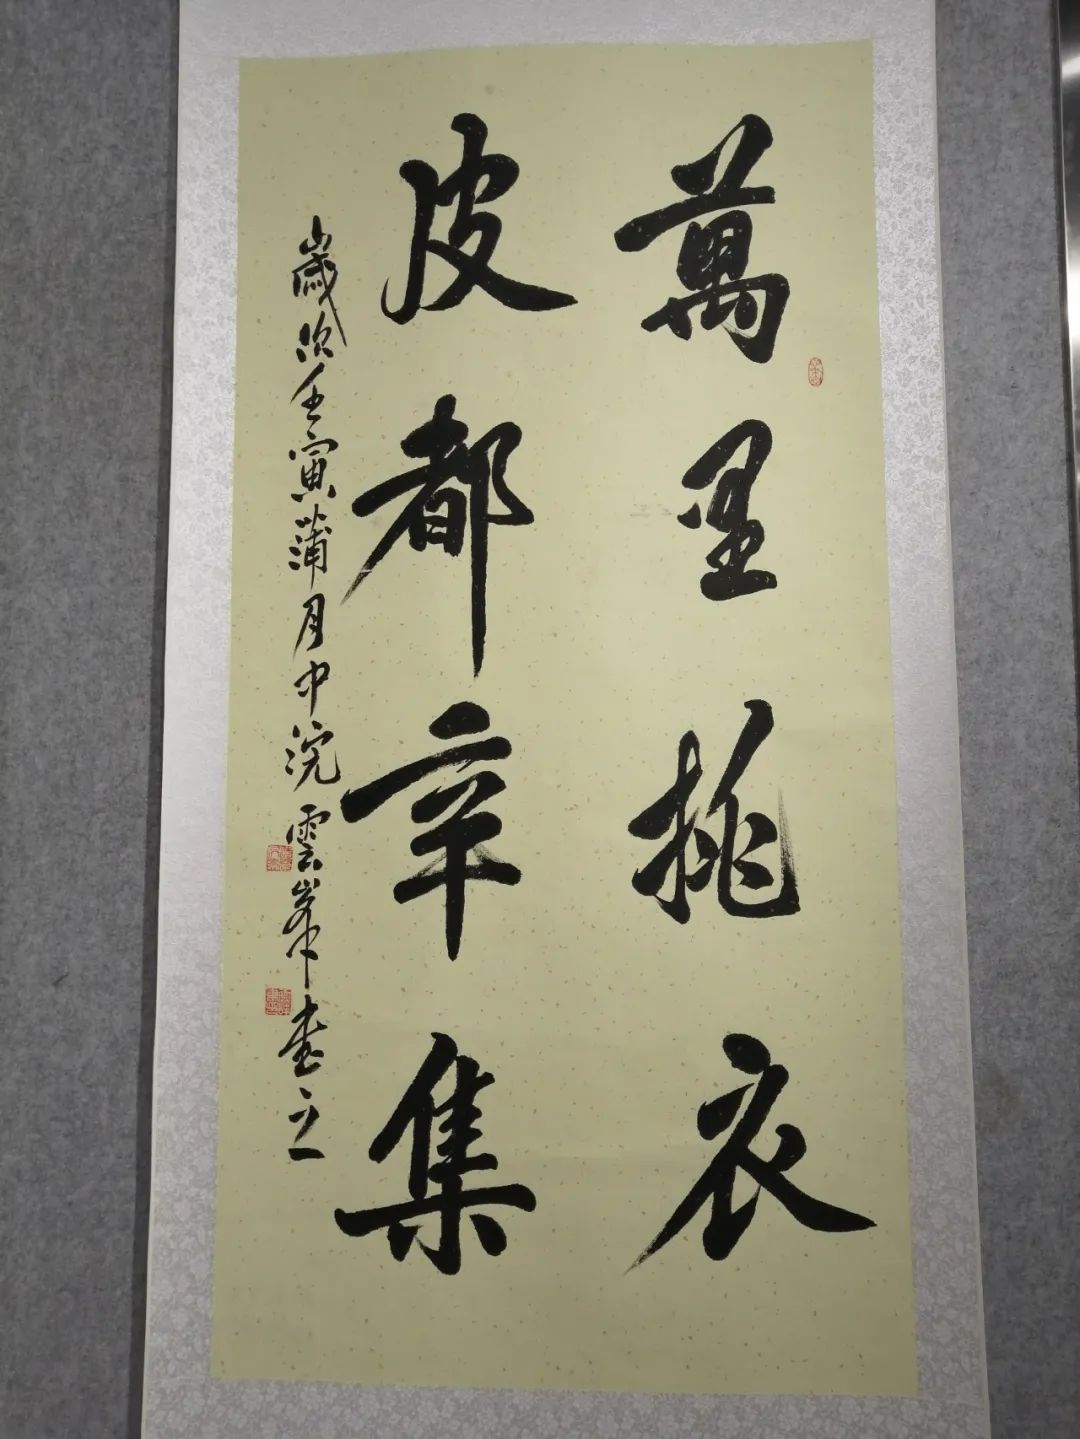 萬里挑衣
皮都辛集
歲次壬寅蒲月中浣雲峯書之